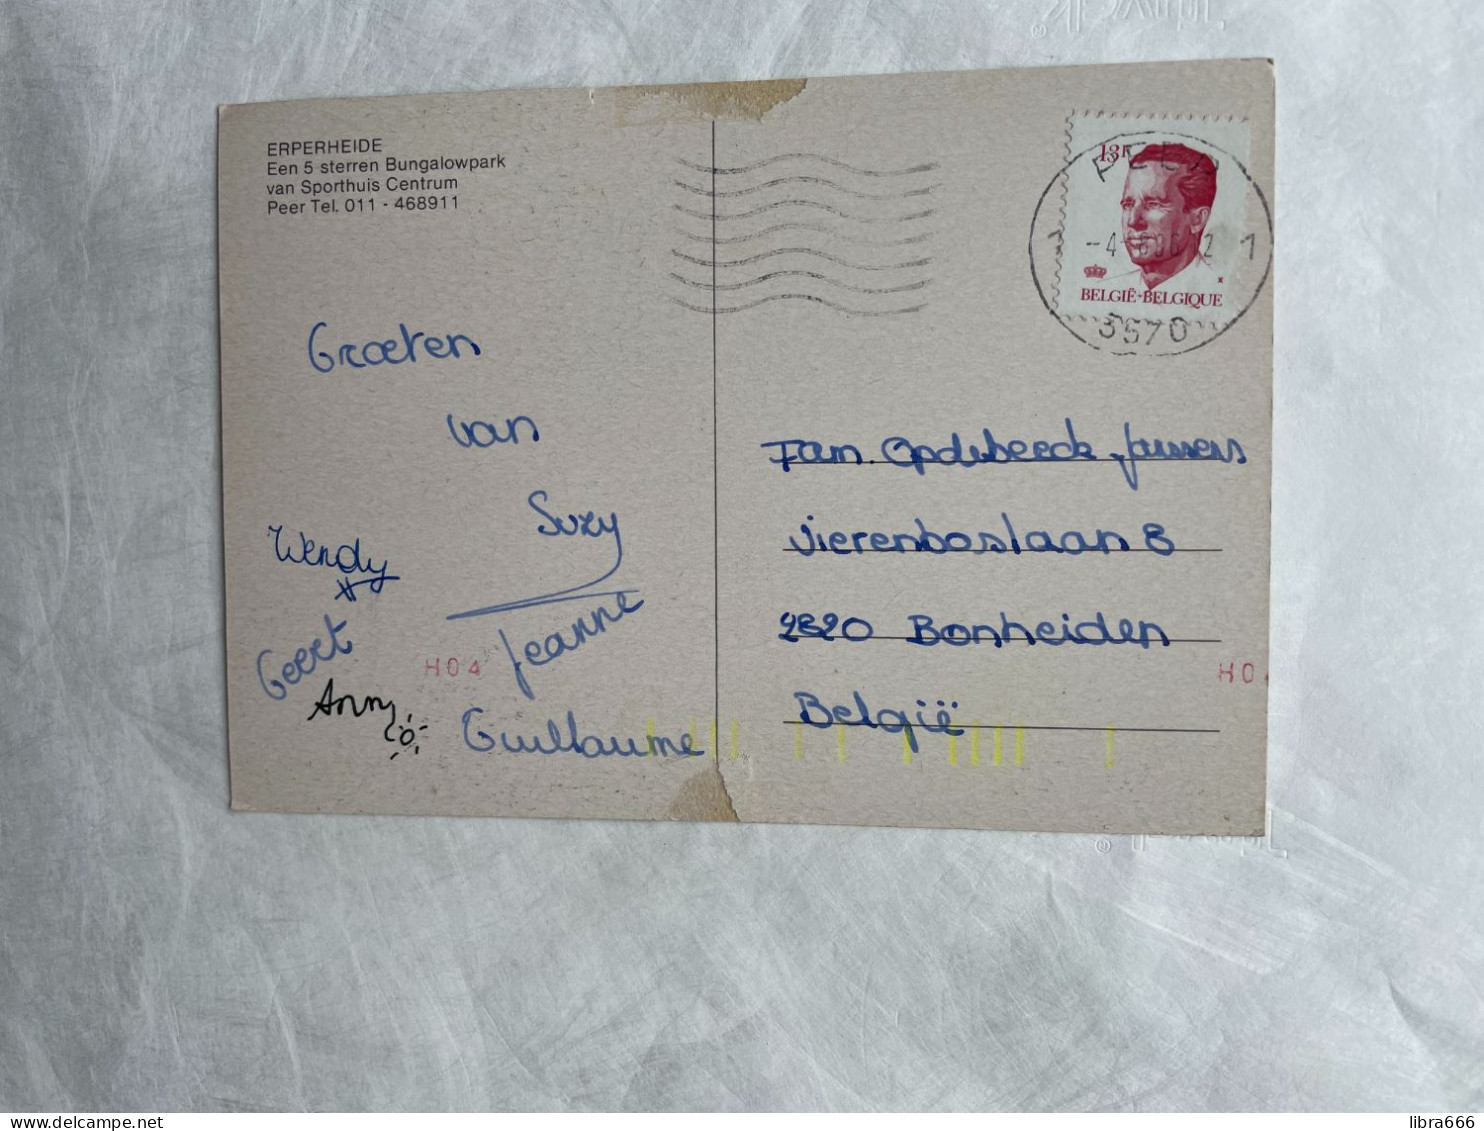 ERPERHEIDE
Een 5 sterren Bungalowpark
van Sporthuis Centrum
Peer Tel. 011 - 468911
13F
BELGIË-BELGIQUE
1
3570
Groeten
van
Suzy
Wendy
Jeanne
Geert
Anny
Guillaume
H04
Fam. Opdebeeck-Janssens
Vierenboslaan 8
2820 Bonheiden
België
H0
delcampe.net
libra666